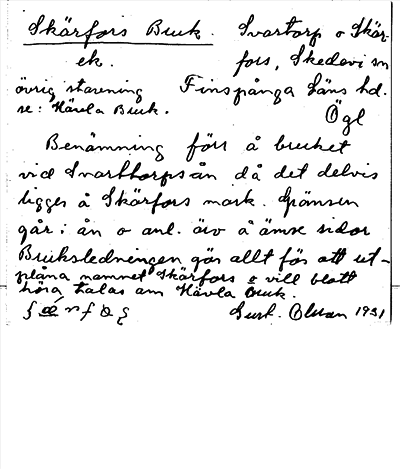 Skärfors Bruk. Svartorp o Skär-
ek. fors, Skedevi sn
övrig stavning Finspånga läns hd.
se: Hävla Bruk. Ögl
Benämning förr å bruket
vid Svarttorpsån då det delvis
ligger å Skärfors mark. Gränsen
går i ån o anl. äro å ömse sidor
Bruksledningen gör allt för att ut-
plåna namnet Skärfors o vill blott
höra talas om Hävla Bruk.
Gust. Olsson 1931